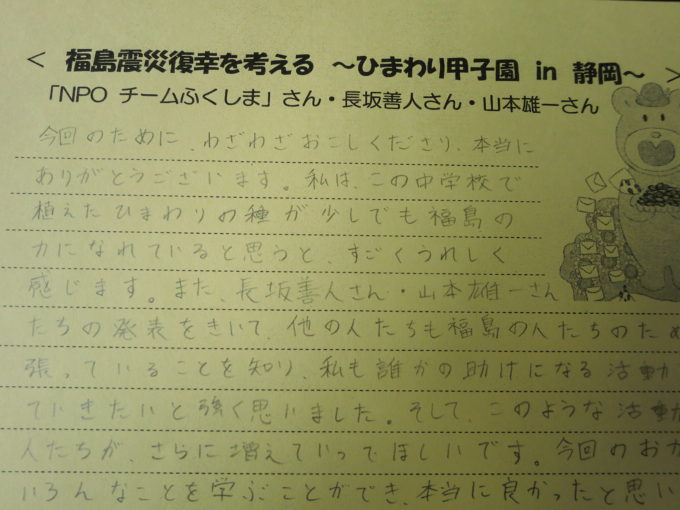 < 福島震災復幸を考える ～ひまわり甲子園 in 静岡～ >
「NPO チームふくしま」さん・長坂善人さん・山本雄一さん
今回のために、わざわざおこしくださり、本当に
ありがとうございます。私は、この中学校で
植えたひまわりの種が少しでも福島の
力になれていると思うと、すごくうれしく
感じます。また、長坂善人さん・山本雄一さん
たちの発表をきいて、他の人たちも福島の人たちのため
張っていることを知り、私も誰かの助けになる活動
ていきたいと強く思いました。そして、このような活動
人たちが、さらに増えていってほしいです。今回のおか
いろんなことを学ぶことができ、本当に良かったと思い